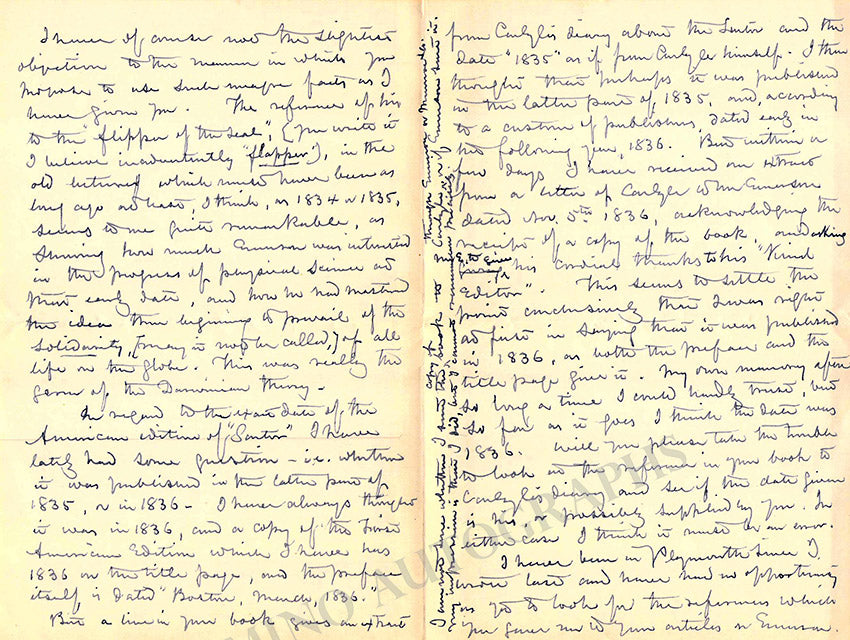 I have of course not the slightest
objection to the manner in which you
propose to use such meagre facts as I
have given you. The reference of his
to the "flipper of the seal", (you write it
I believe inadvertently "flapper"), in the
old lecture, which must have been as
long ago at least, I think, as 1834 or 1835,
seems to me quite remarkable, as
showing how much Emerson was interested
in the progress of physical science at
that early date, and how he had mastered
the idea then beginning to prevail of the
solidarity, (may it not be called,) of all
life on the globe. This was really the
germ of the Darwinian theory –
In regard to the exact date of the
American edition of "Sartor" I have
lately had some question – i.e. whether
it was published in the latter part of
1835, or in 1836 – I have always thought
it was in 1836, and a copy of the First
American Edition which I have has
1836 on the title page, and the preface
itself is dated "Boston, March, 1836."
But a line in your book gives an extract
from Carlyle's diary about the Sartor and the
date "1835" as if from Carlyle himself. I then
thought that perhaps it was published
in the latter part of 1835, and, according
to a custom of publishers, dated early in
the following year, 1836. But within a
few days I have received an extract
from a letter of Carlyle to Emerson
dated Nov. 5th 1836, acknowledging the
receipt of a copy of the book, and asking
to give his cordial thanks to his "Kind
Editor". This seems to settle the
point conclusively that I was right
at first in saying that it was published
in 1836, as both the preface and the
title page give it. My own memory after
so long a time I could hardly trust, but
so far as it goes I think the date was
1836. Will you please take the trouble
to look at the reference in your book to
Carlyle's diary and see if the date given
is his, or possibly supplied by you. In
either case I think it must be an error.
I have been in Plymouth since I
wrote last and have had no opportunity
as yet to look for the references which
you gave me to your articles on Emerson.
I am not sure whether I sent the book to Carlyle or if Emerson sent it.
my impression is that I did, but I cannot remember
MINO AUTOGRAPHS